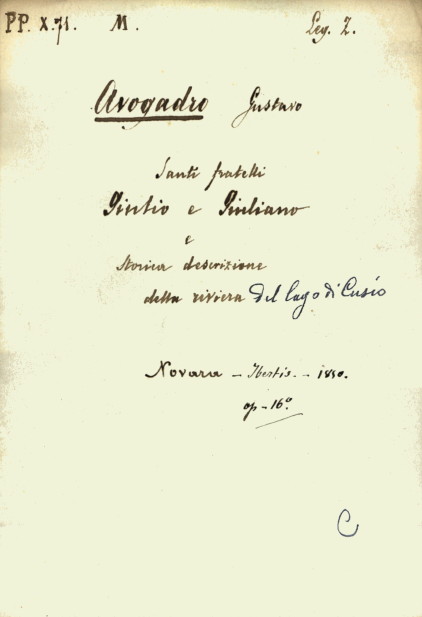 PP. X. 71. M. Leg. Z.
Avogadro Gustavo
Santi fratelli
Giulio e Giuliano
e
storica descrizione
della riviera del Lago di Cusio
Novara - Ibertis. - 1850.
op - 16º.
C